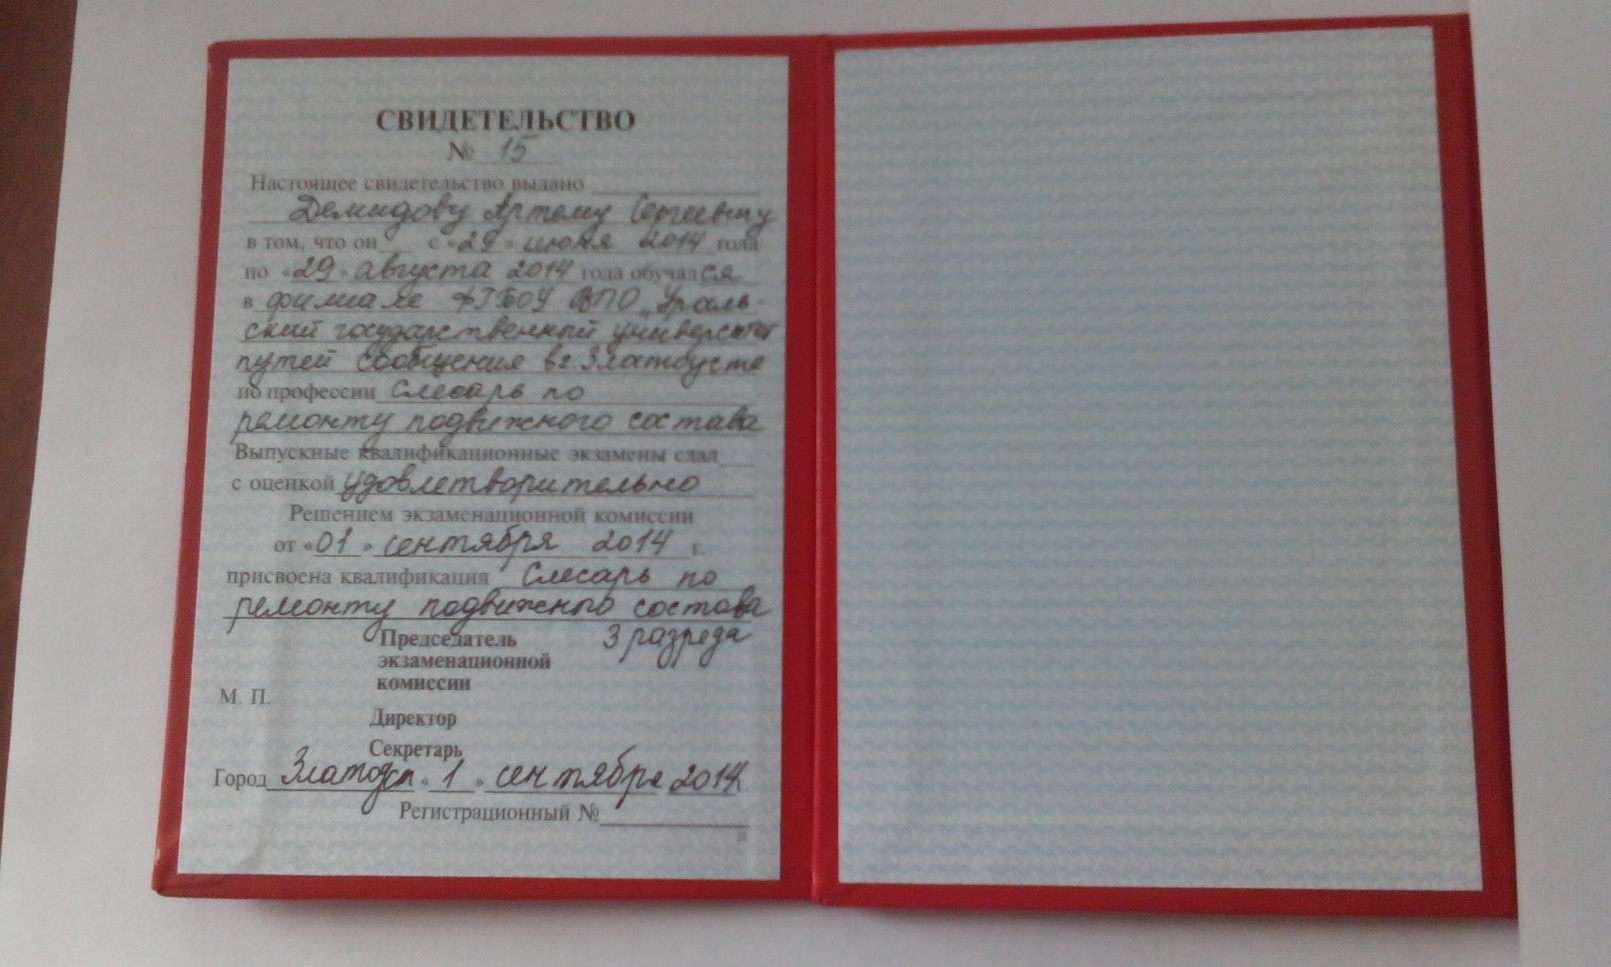 СВИДЕТЕЛЬСТВО
№ 15
Настоящее свидетельство выдано
Демидову Артему Сергеевичу
в том, что он с «29» июня 2014 года
по «29» августа 2014 года обучался
в филиале ФГБОУ ВПО „Ураль-
ский государственный университет
путей сообщения в г. Златоусте
по профессии слесарь по
ремонту подвижного состава
Выпускные квалификационные экзамены сдал
с оценкой удовлетворительно
Решением экзаменационной комиссии
от «01» сентября 2014 г.
присвоена квалификация Слесарь по
ремонту подвижного состава
Председатель 3 разряда
экзаменационной
комиссии
М. П.
Директор
Секретарь
Город Златоуст «1» сентября 2014
Регистрационный №